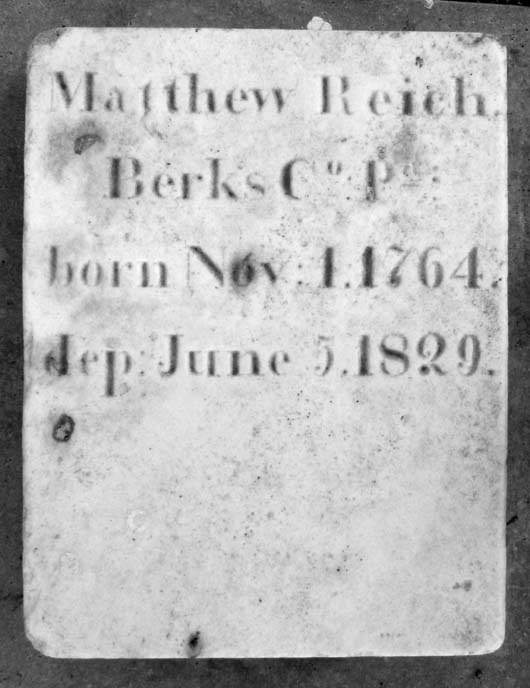 Matthew Reich.
Berks Cº. Pª:
born Nov: 1.1764.
dep: June 5.1829.